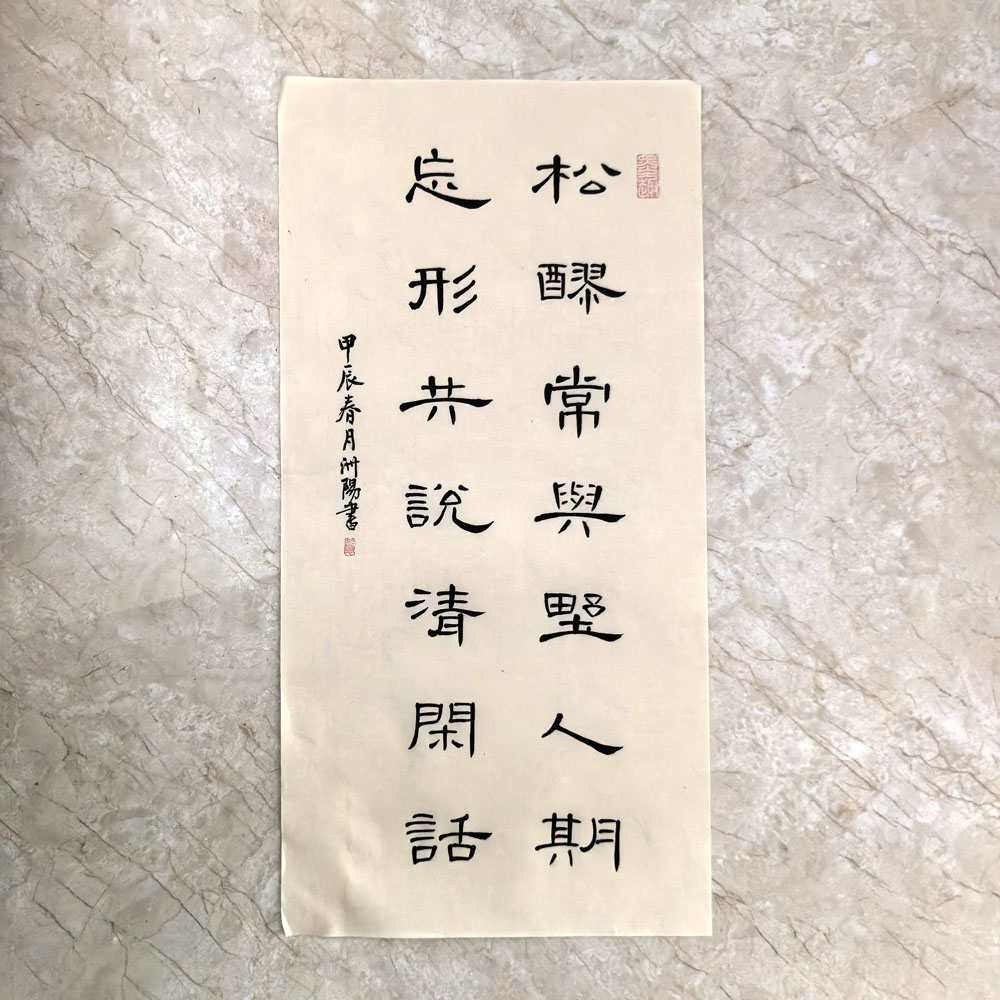 松醪常與野人期
忘形共說清閑話
甲辰春月洲陽書